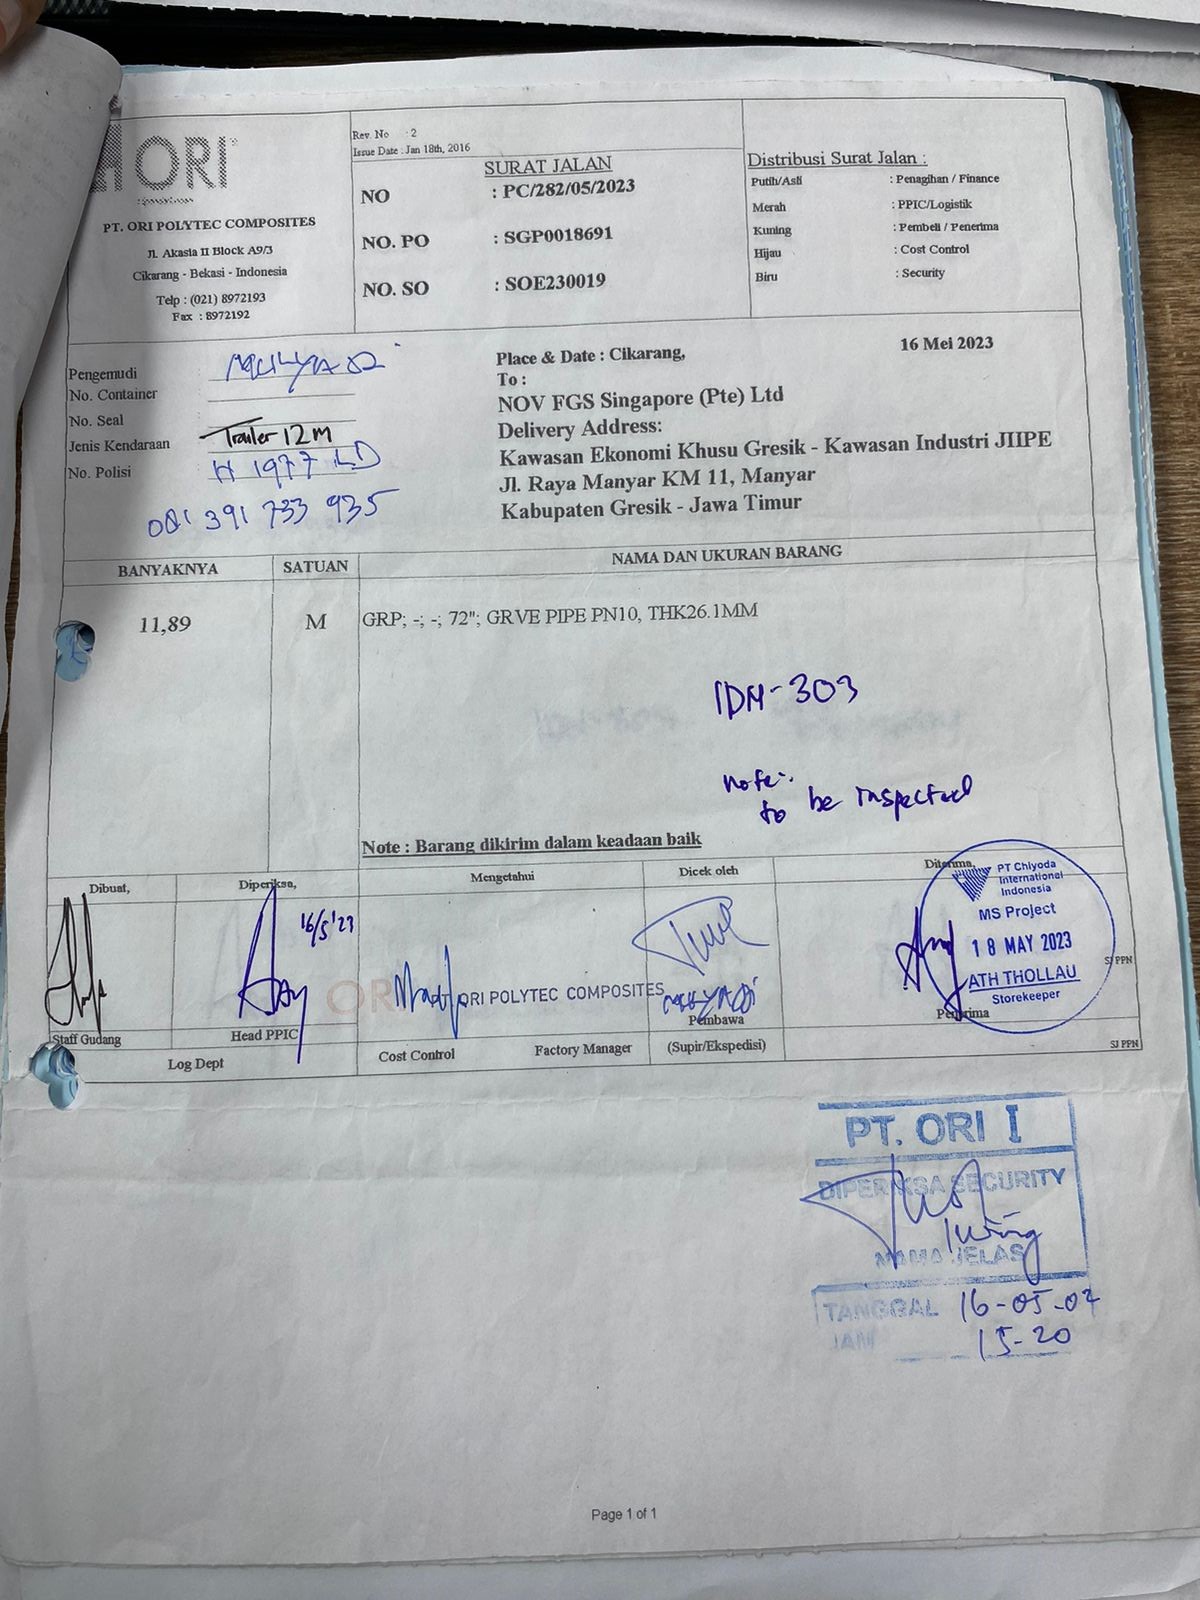 ORI
PT. ORI POLYTEC COMPOSITES
Jl. Akasia II Block A9/3
Cikarang - Bekasi - Indonesia
Telp : (021) 8972193
Fax : 8972192
Rev. No : 2
Issue Date : Jan 18th, 2016
SURAT JALAN
NO : PC/282/05/2023
NO. PO : SGP0018691
NO. SO : SOE230019
Distribusi Surat Jalan :
Putih/Asli : Penagihan / Finance
Merah : PPIC/Logistik
Kuning : Pembeli / Penerima
Hijau : Cost Control
Biru : Security
Pengemudi MULYADI
No. Container
No. Seal
Jenis Kendaraan Trailer 12M
No. Polisi H 1977 LD
081 391 733 935
Place & Date : Cikarang, 16 Mei 2023
To :
NOV FGS Singapore (Pte) Ltd
Delivery Address:
Kawasan Ekonomi Khusu Gresik - Kawasan Industri JIIPE
Jl. Raya Manyar KM 11, Manyar
Kabupaten Gresik - Jawa Timur
BANYAKNYA SATUAN NAMA DAN UKURAN BARANG
11,89 M GRP; -; -; 72"; GRVE PIPE PN10, THK26.1MM
IDM-303
note:
to be inspected
Note : Barang dikirim dalam keadaan baik
Dibuat, Diperiksa, Mengetahui Dicek oleh Diterima,
16/5'23
PT Chiyoda
International
Indonesia
MS Project
18 MAY 2023
ATH THOLLAU
Storekeeper
SJ PPN
ORI POLYTEC COMPOSITES
MULYADI
Staff Gudang Head PPIC Pembawa Penerima
Log Dept Cost Control Factory Manager (Supir/Ekspedisi) SJ PPN
PT. ORI I
DIPERIKSA SECURITY
NAMA JELAS
TANGGAL 16-05-07
JAM 15-20
Page 1 of 1